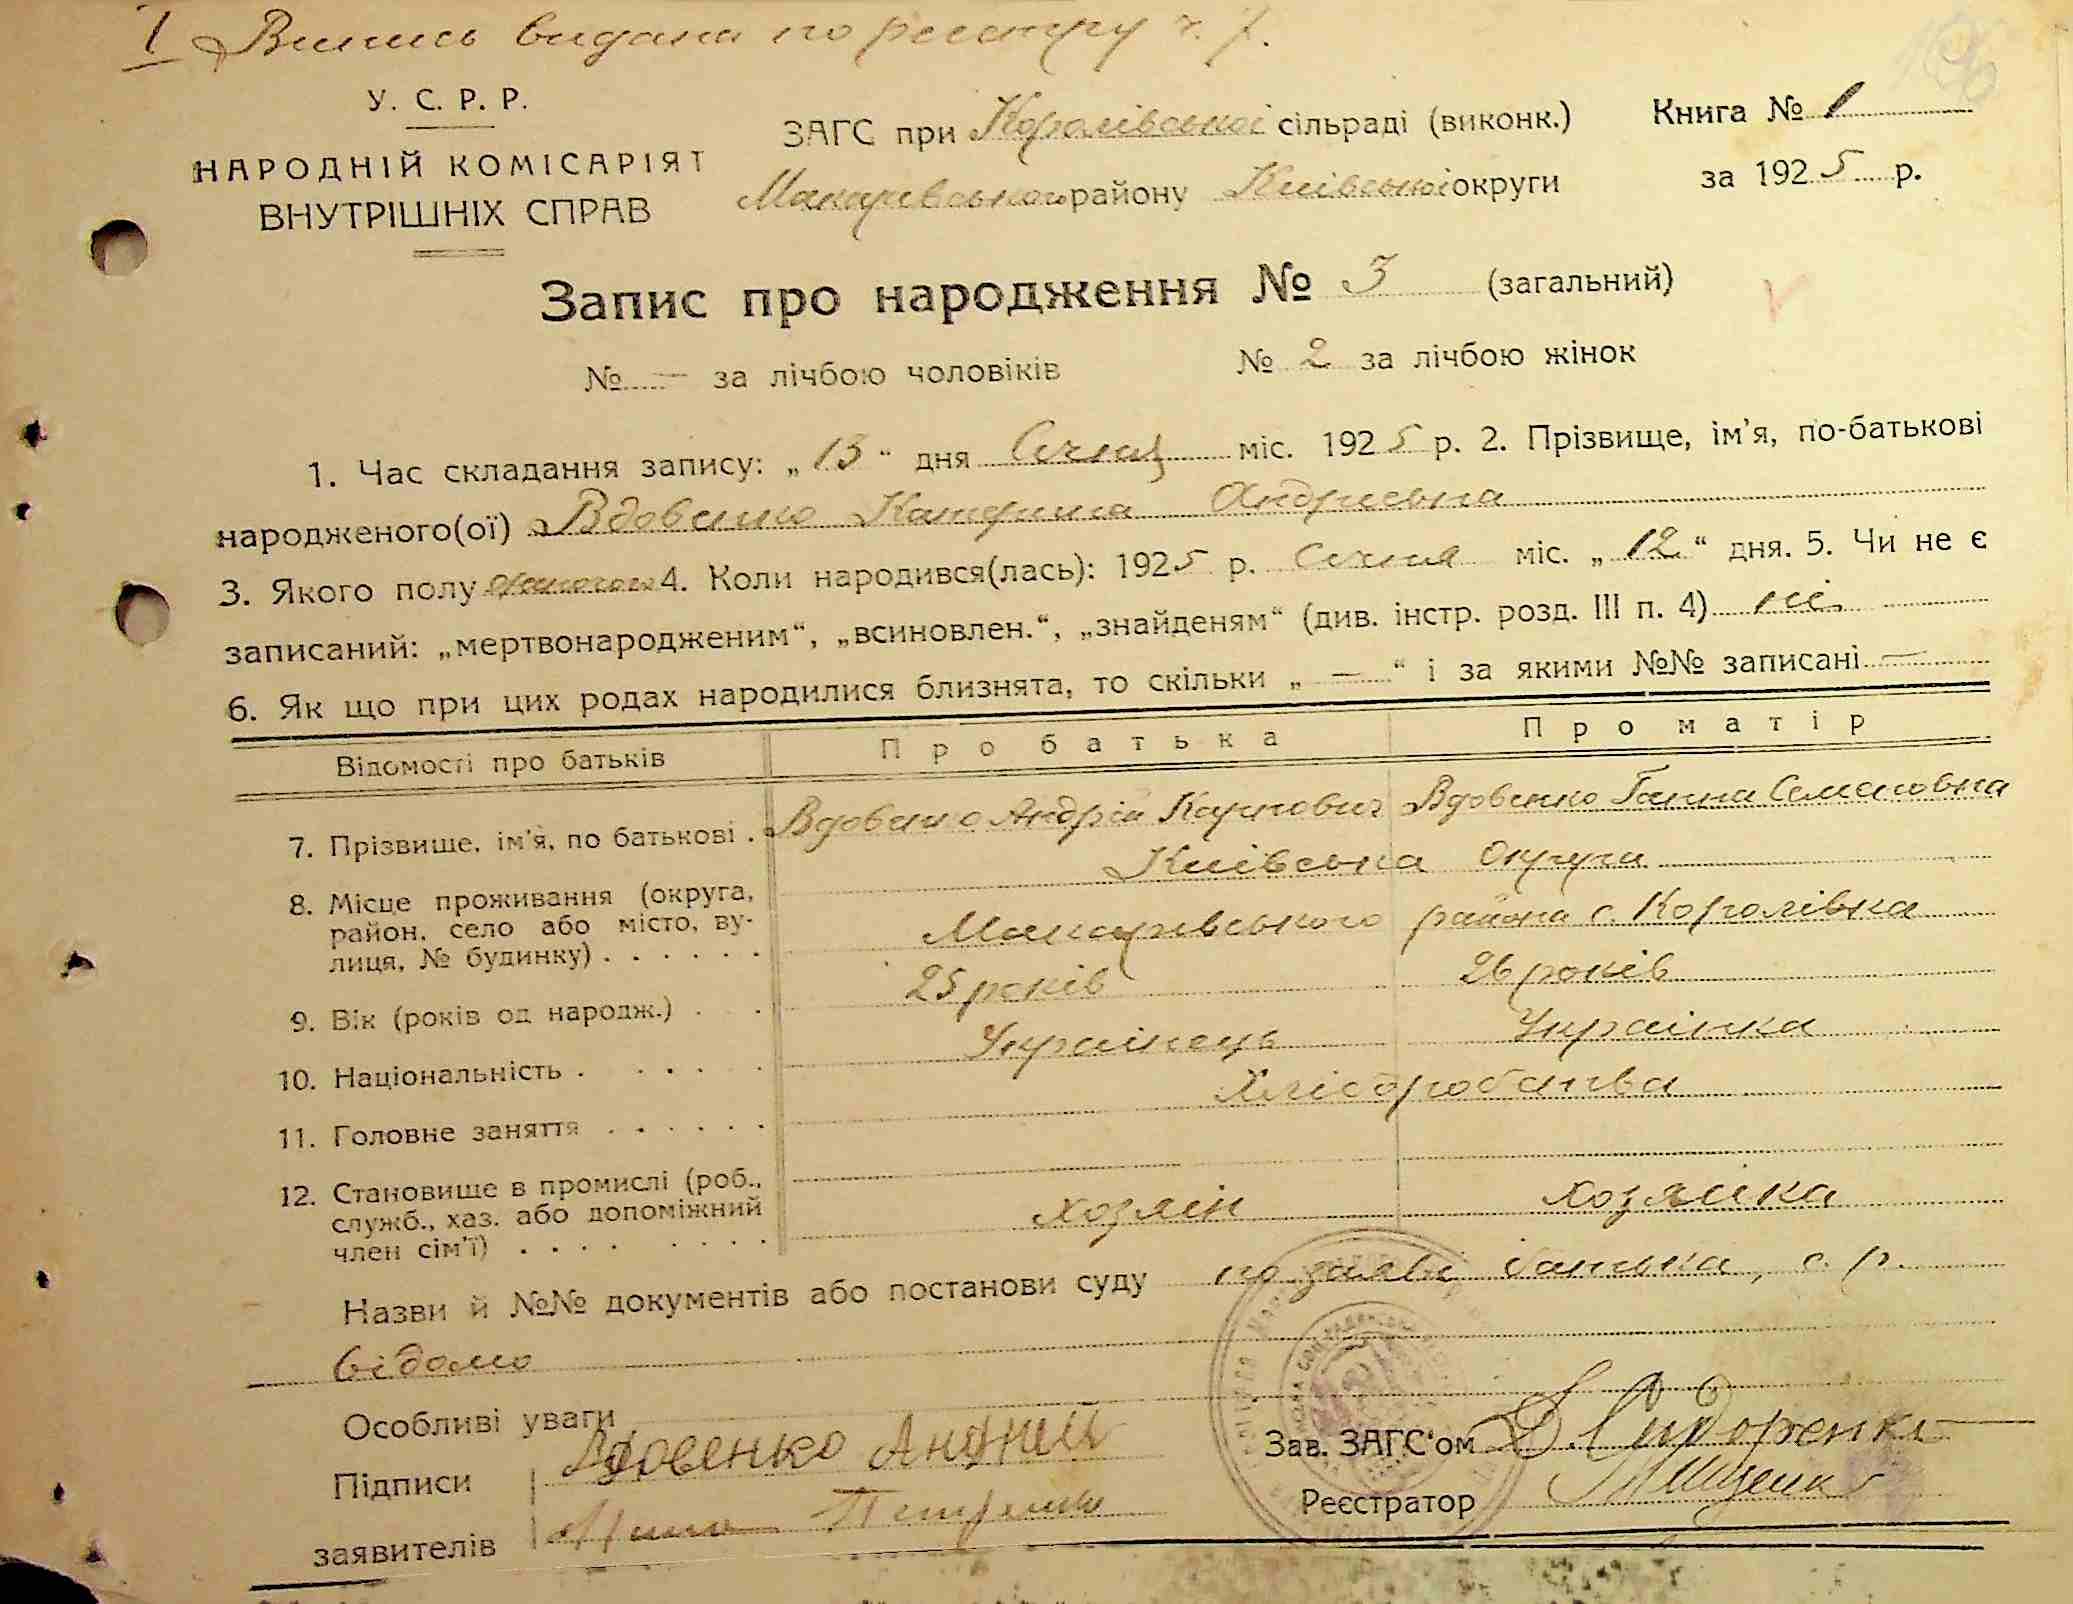 1 Випись видана по реєстру ч. 7.
У. С. Р. Р.
НАРОДНІЙ КОМІСАРІЯТ
ВНУТРІШНІХ СПРАВ
ЗАГС при Королівської сільраді (виконк.)
Макарівського району Київської округи
Книга № 1
за 1925 р.
Запис про народження № 3 (загальний)
№ — за лічбою чоловіків № 2 за лічбою жінок
1. Час складання запису: „13“ дня Січня міс. 1925 р. 2. Прізвище, ім'я, по-батькові
народженого(ої) Вдовенко Катерина Андрієвна
3. Якого полу жіночого 4. Коли народився(лась): 1925 р. Січня міс. „12“ дня. 5. Чи не є
записаний: „мертвонародженим“, „всиновлен.“, „знайденям“ (див. інстр. розд. III п. 4) ні
6. Як що при цих родах народилися близнята, то скільки „—“ і за якими №№ записані —
Відомості про батьків Про батька Про матір
7. Прізвище, ім'я, по батькові . Вдовенко Андрій Карпович Вдовенко Ганна Семеновна
8. Місце проживання (округа, район, село або місто, вулиця, № будинку) . . . . . . Київська Округа
Макарівського района с. Королівка
9. Вік (років од народж.) . . . 25 років 26 років
10. Національність . . . . . Українець Українка
11. Головне заняття . . . . . . Хліборобства
12. Становище в промислі (роб.,
служб., хаз. або допоміжний
член сім'ї) . . . . . . . . хозяін хозяйка
Назви й №№ документів або постанови суду по заяві батька, с. р.
відомо
Особливі уваги
Підписи Вдовенко Андрий
заявителів
Зав. ЗАГС'ом Д. Сидоренко
Реєстратор